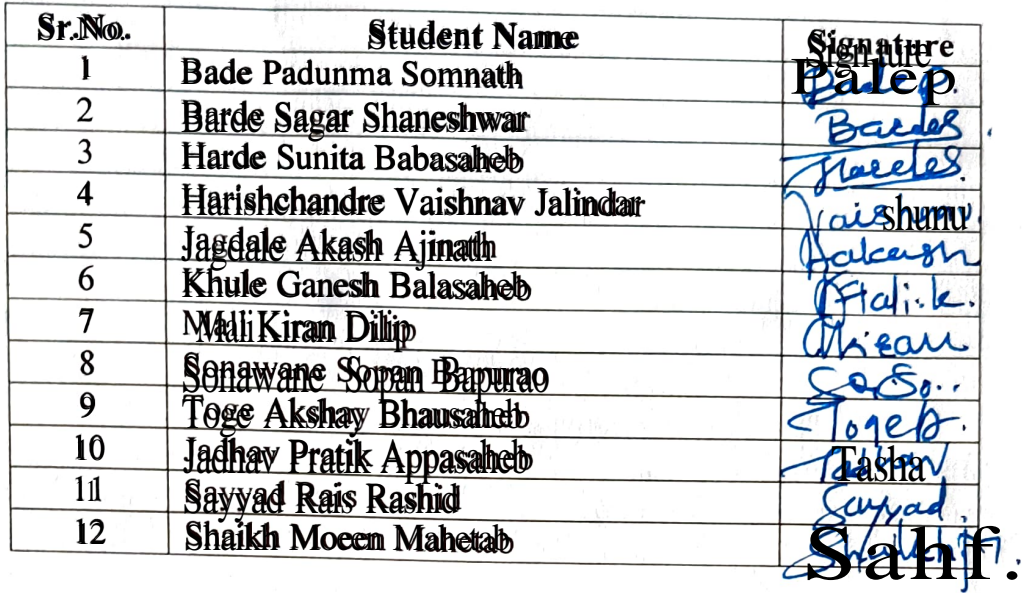 Sr.No. Student Name Signature
1 Bade Padunma Somnath Palep
2 Barde Sagar Shaneshwar Bardes
3 Harde Sunita Babasaheb Hardes
4 Harishchandre Vaishnav Jalindar
5 Jagdale Akash Ajinath Aakash
6 Khule Ganesh Balasaheb
7 Mali Kiran Dilip
8 Sonawane Sopan Bapurao
9 Toge Akshay Bhausaheb
10 Jadhav Pratik Appasaheb Tasha
11 Sayyad Rais Rashid Sayyad
12 Shaikh Moeen Mahetab Sahf.